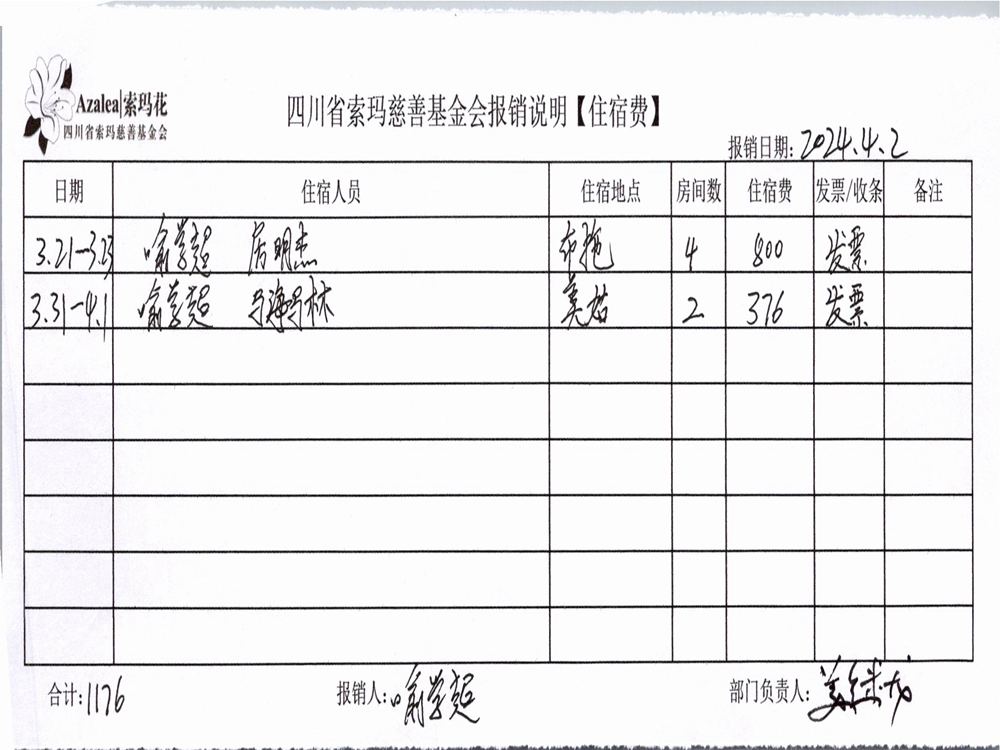 Azalea|索玛花
四川省索玛慈善基金会
四川省索玛慈善基金会报销说明【住宿费】
报销日期:2024.4.2
日期 住宿人员 住宿地点 房间数 住宿费 发票/收条 备注
3.21-3.23 喻学超 居明杰 布拖 4 800 发票
3.31-4.1 喻学超 马海马林 美姑 2 376 发票
合计:1176 报销人:喻学超 部门负责人: